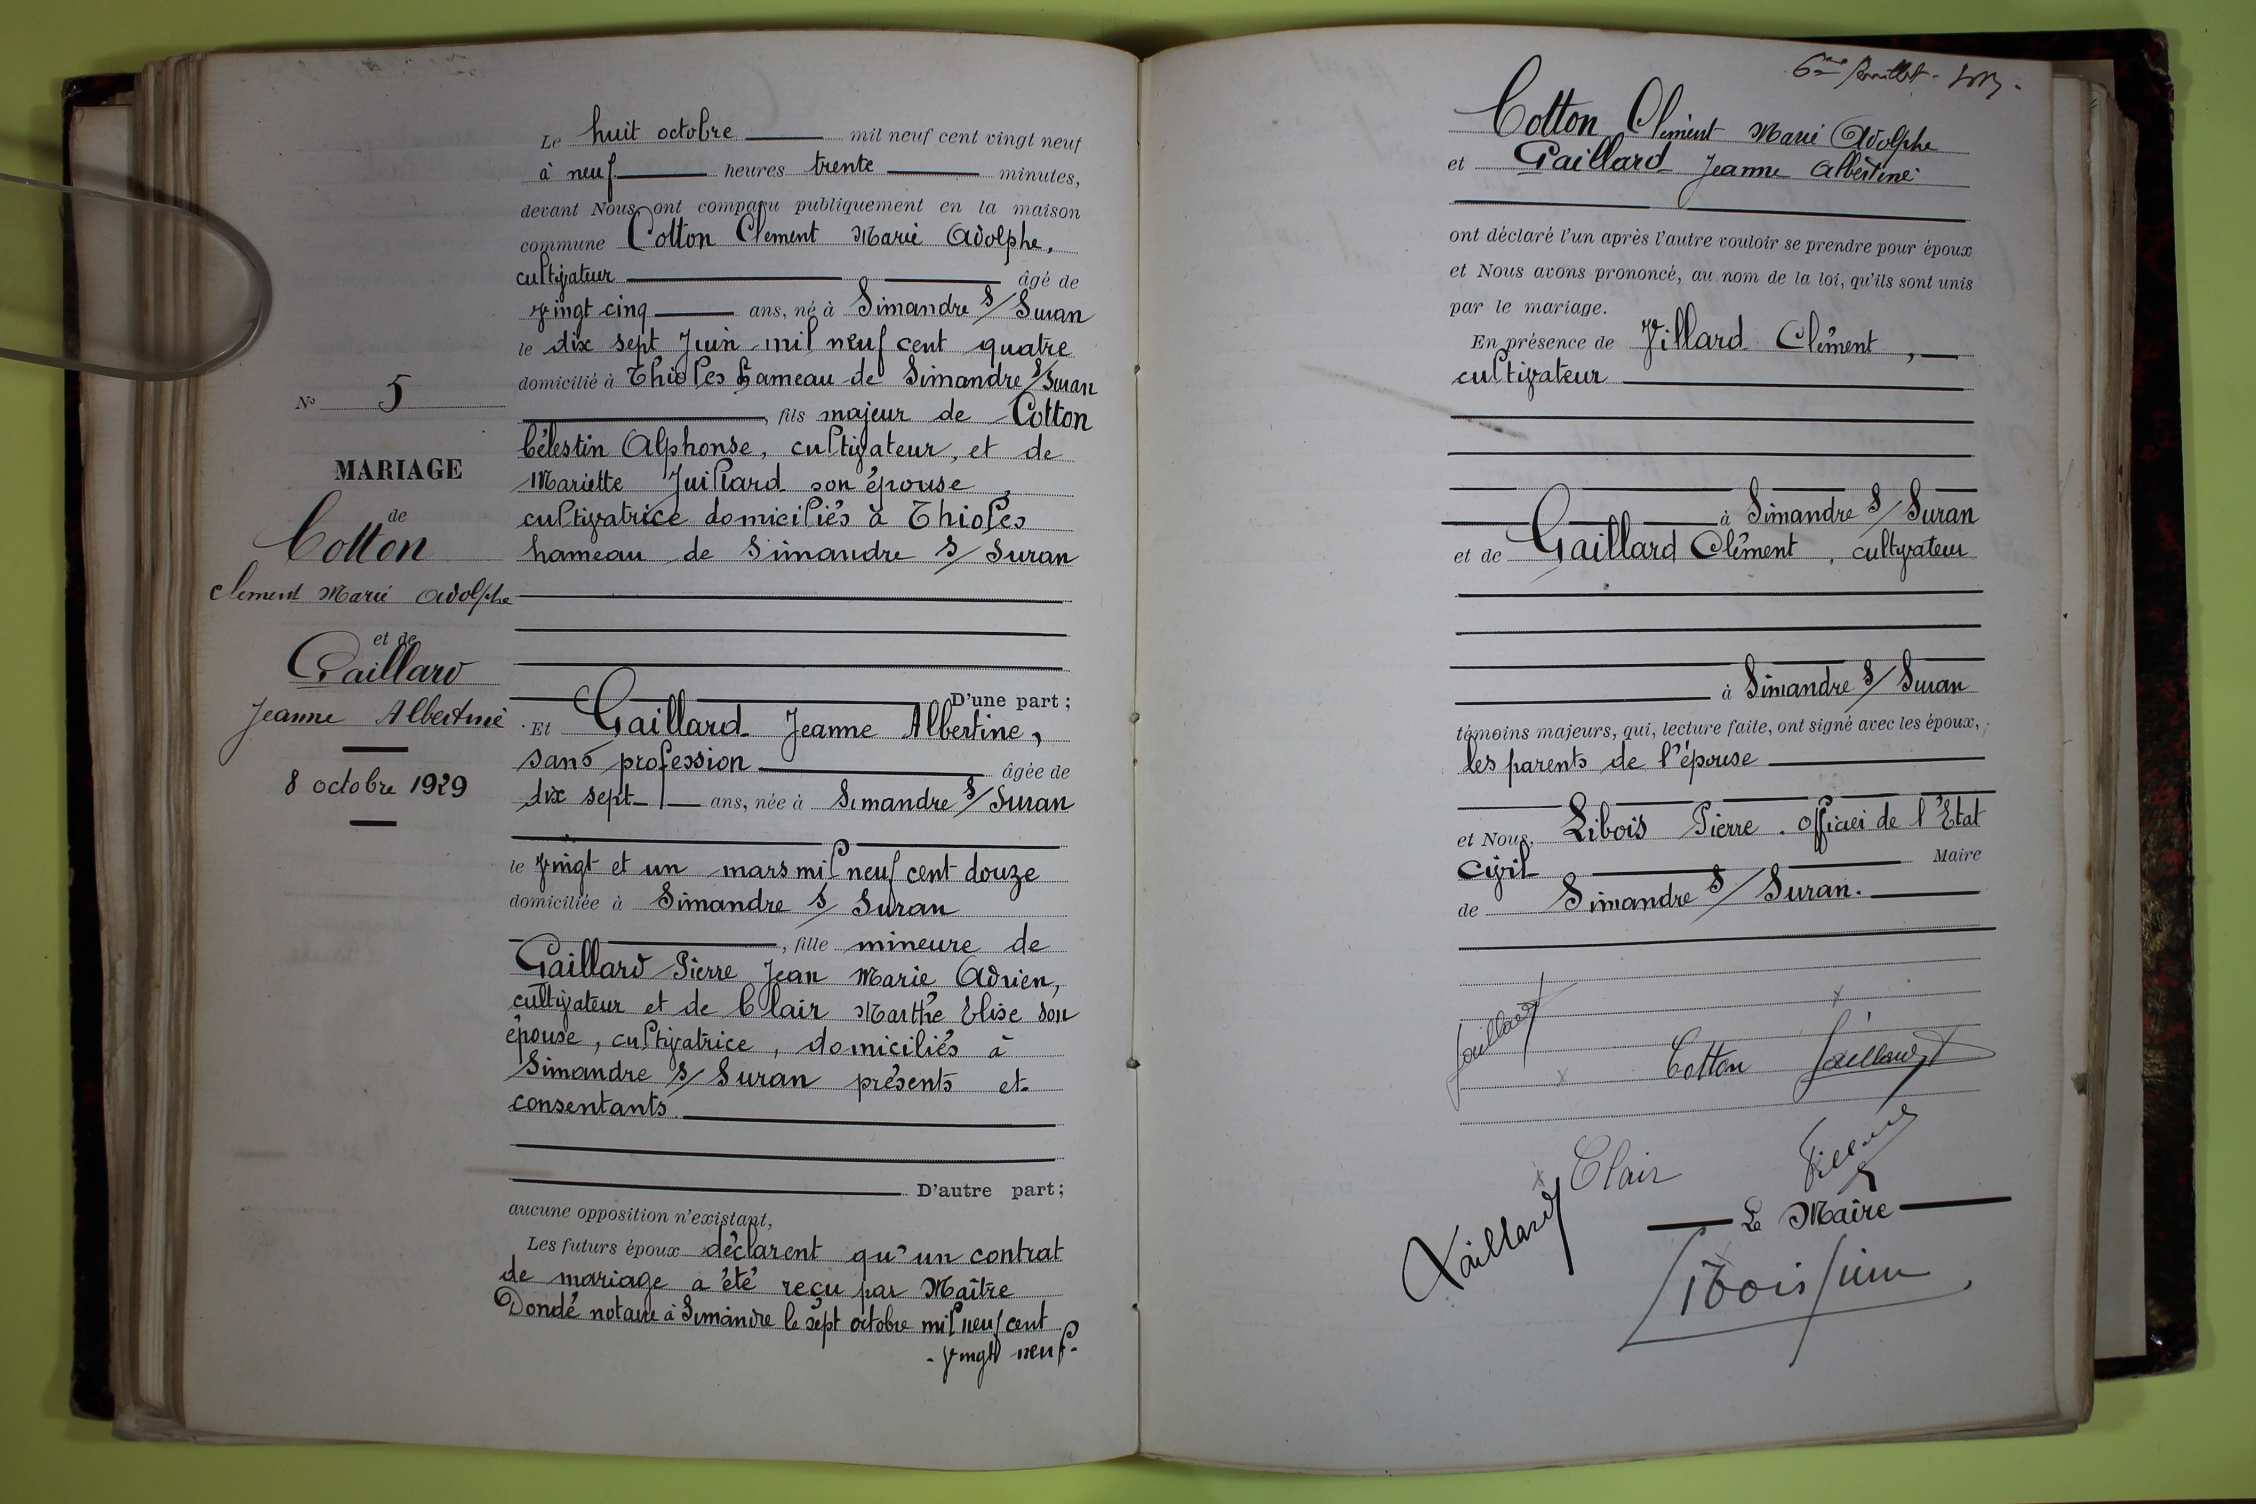 Le huit octobre mil neuf cent vingt neuf
à neuf heures trente minutes,
devant Nous ont comparu publiquement en la maison
commune Cotton Clément Marie Adolphe,
cultivateur âgé de
vingt cinq ans, né à Simandre s/ Suran
le dix sept Juin mil neuf cent quatre
domicilié à Thioles hameau de Simandre s/ Suran
, fils majeur de Cotton
Célestin Alphonse, cultivateur, et de
Mariette Juillard son épouse,
cultivatrice domiciliés à Thioles
hameau de Simandre s/ Suran
D'une part;
Et Gaillard Jeanne Albertine,
sans profession âgée de
dix sept ans, née à Simandre s/ Suran
le vingt et un mars mil neuf cent douze
domiciliée à Simandre s/ Suran
, fille mineure de
Gaillard Pierre Jean Marie Adrien,
cultivateur et de Clair Marthe Elise son
épouse, cultivatrice, domiciliés à
Simandre s/ Suran présents et
consentants.
D'autre part;
aucune opposition n'existant,
Les futurs époux déclarent qu'un contrat
de mariage a été reçu par Maître
Dondé notaire à Simandre le sept octobre mil neuf cent
- vingt neuf -
No 5
MARIAGE
de
Cotton
Clement Marie Adolphe
et de
Gaillard
Jeanne Albertine
8 octobre 1929
Cotton Clément Marie Adolphe
et Gaillard Jeanne Albertine
ont déclaré l'un après l'autre vouloir se prendre pour époux
et Nous avons prononcé, au nom de la loi, qu'ils sont unis
par le mariage.
En présence de Villard Clément,
cultivateur
à Simandre s/ Suran
et de Gaillard Clément, cultivateur
à Simandre s/ Suran
témoins majeurs, qui, lecture faite, ont signé avec les époux,
les parents de l'épouse
et Nous, Libois Pierre. officier de l'Etat
civil Maire
de Simandre s/ Suran.
Gaillard
Cotton Gaillard
Clair
Gaillard
Le Maire
Libois